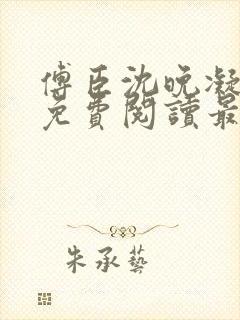 傅臣沈晚凝
免費閱讀最
朱承藝